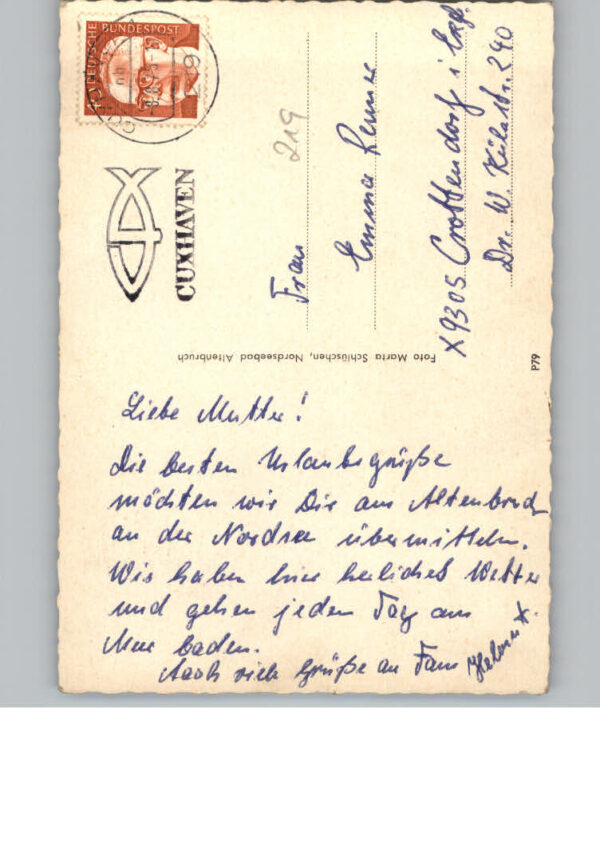 DEUTSCHE BUNDESPOST
CUXHAVEN
219
Frau
Emma
X9305 Crottendorf i. Erzg.
Dr. W. Külz-Str. 240
Foto Marta Schlüschen, Nordseebad Altenbruch
P79
Liebe Mutter!
Die besten Urlaubsgrüße
möchten wir Dir aus Altenbruch
an der Nordsee übermitteln.
Wir haben hier herliches Wetter
und gehen jeden Tag am
Meer baden.
Auch viele Grüße an Fam